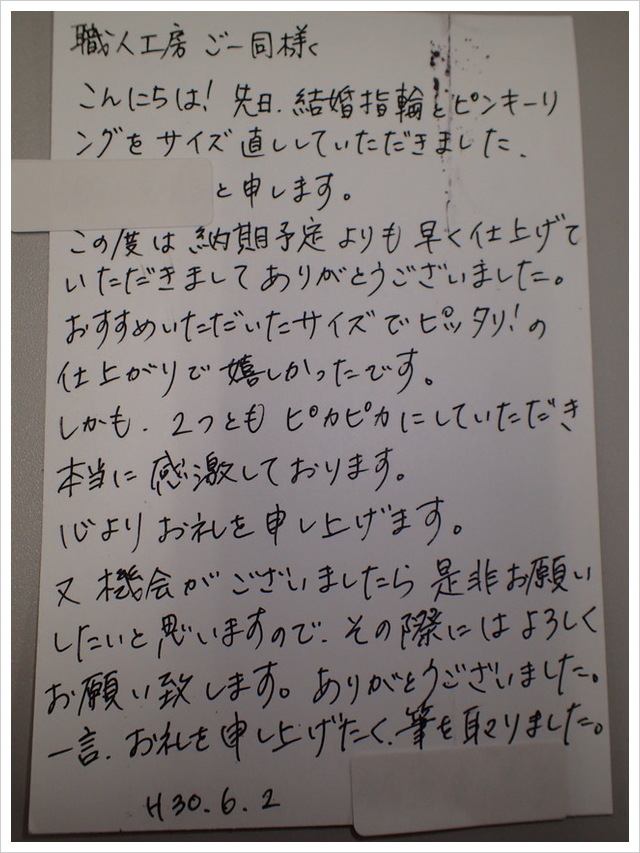 職人工房 ご一同様く
こんにちは! 先日、結婚指輪とピンキーリ
ングをサイズ直ししていただきました、
と申します。
この度は納期予定よりも早く仕上げて
いただきましてありがとうございました。
おすすめいただいたサイズでピッタリ!の
仕上がりで嬉しかったです。
しかも、2つともピカピカにしていただき
本当に感激しております。
心よりお礼を申し上げます。
又機会がございましたら是非お願い
したいと思いますので、その際にはよろしく
お願い致します。ありがとうございました。
一言、お礼を申し上げたく、筆を取りました。
H30.6.2